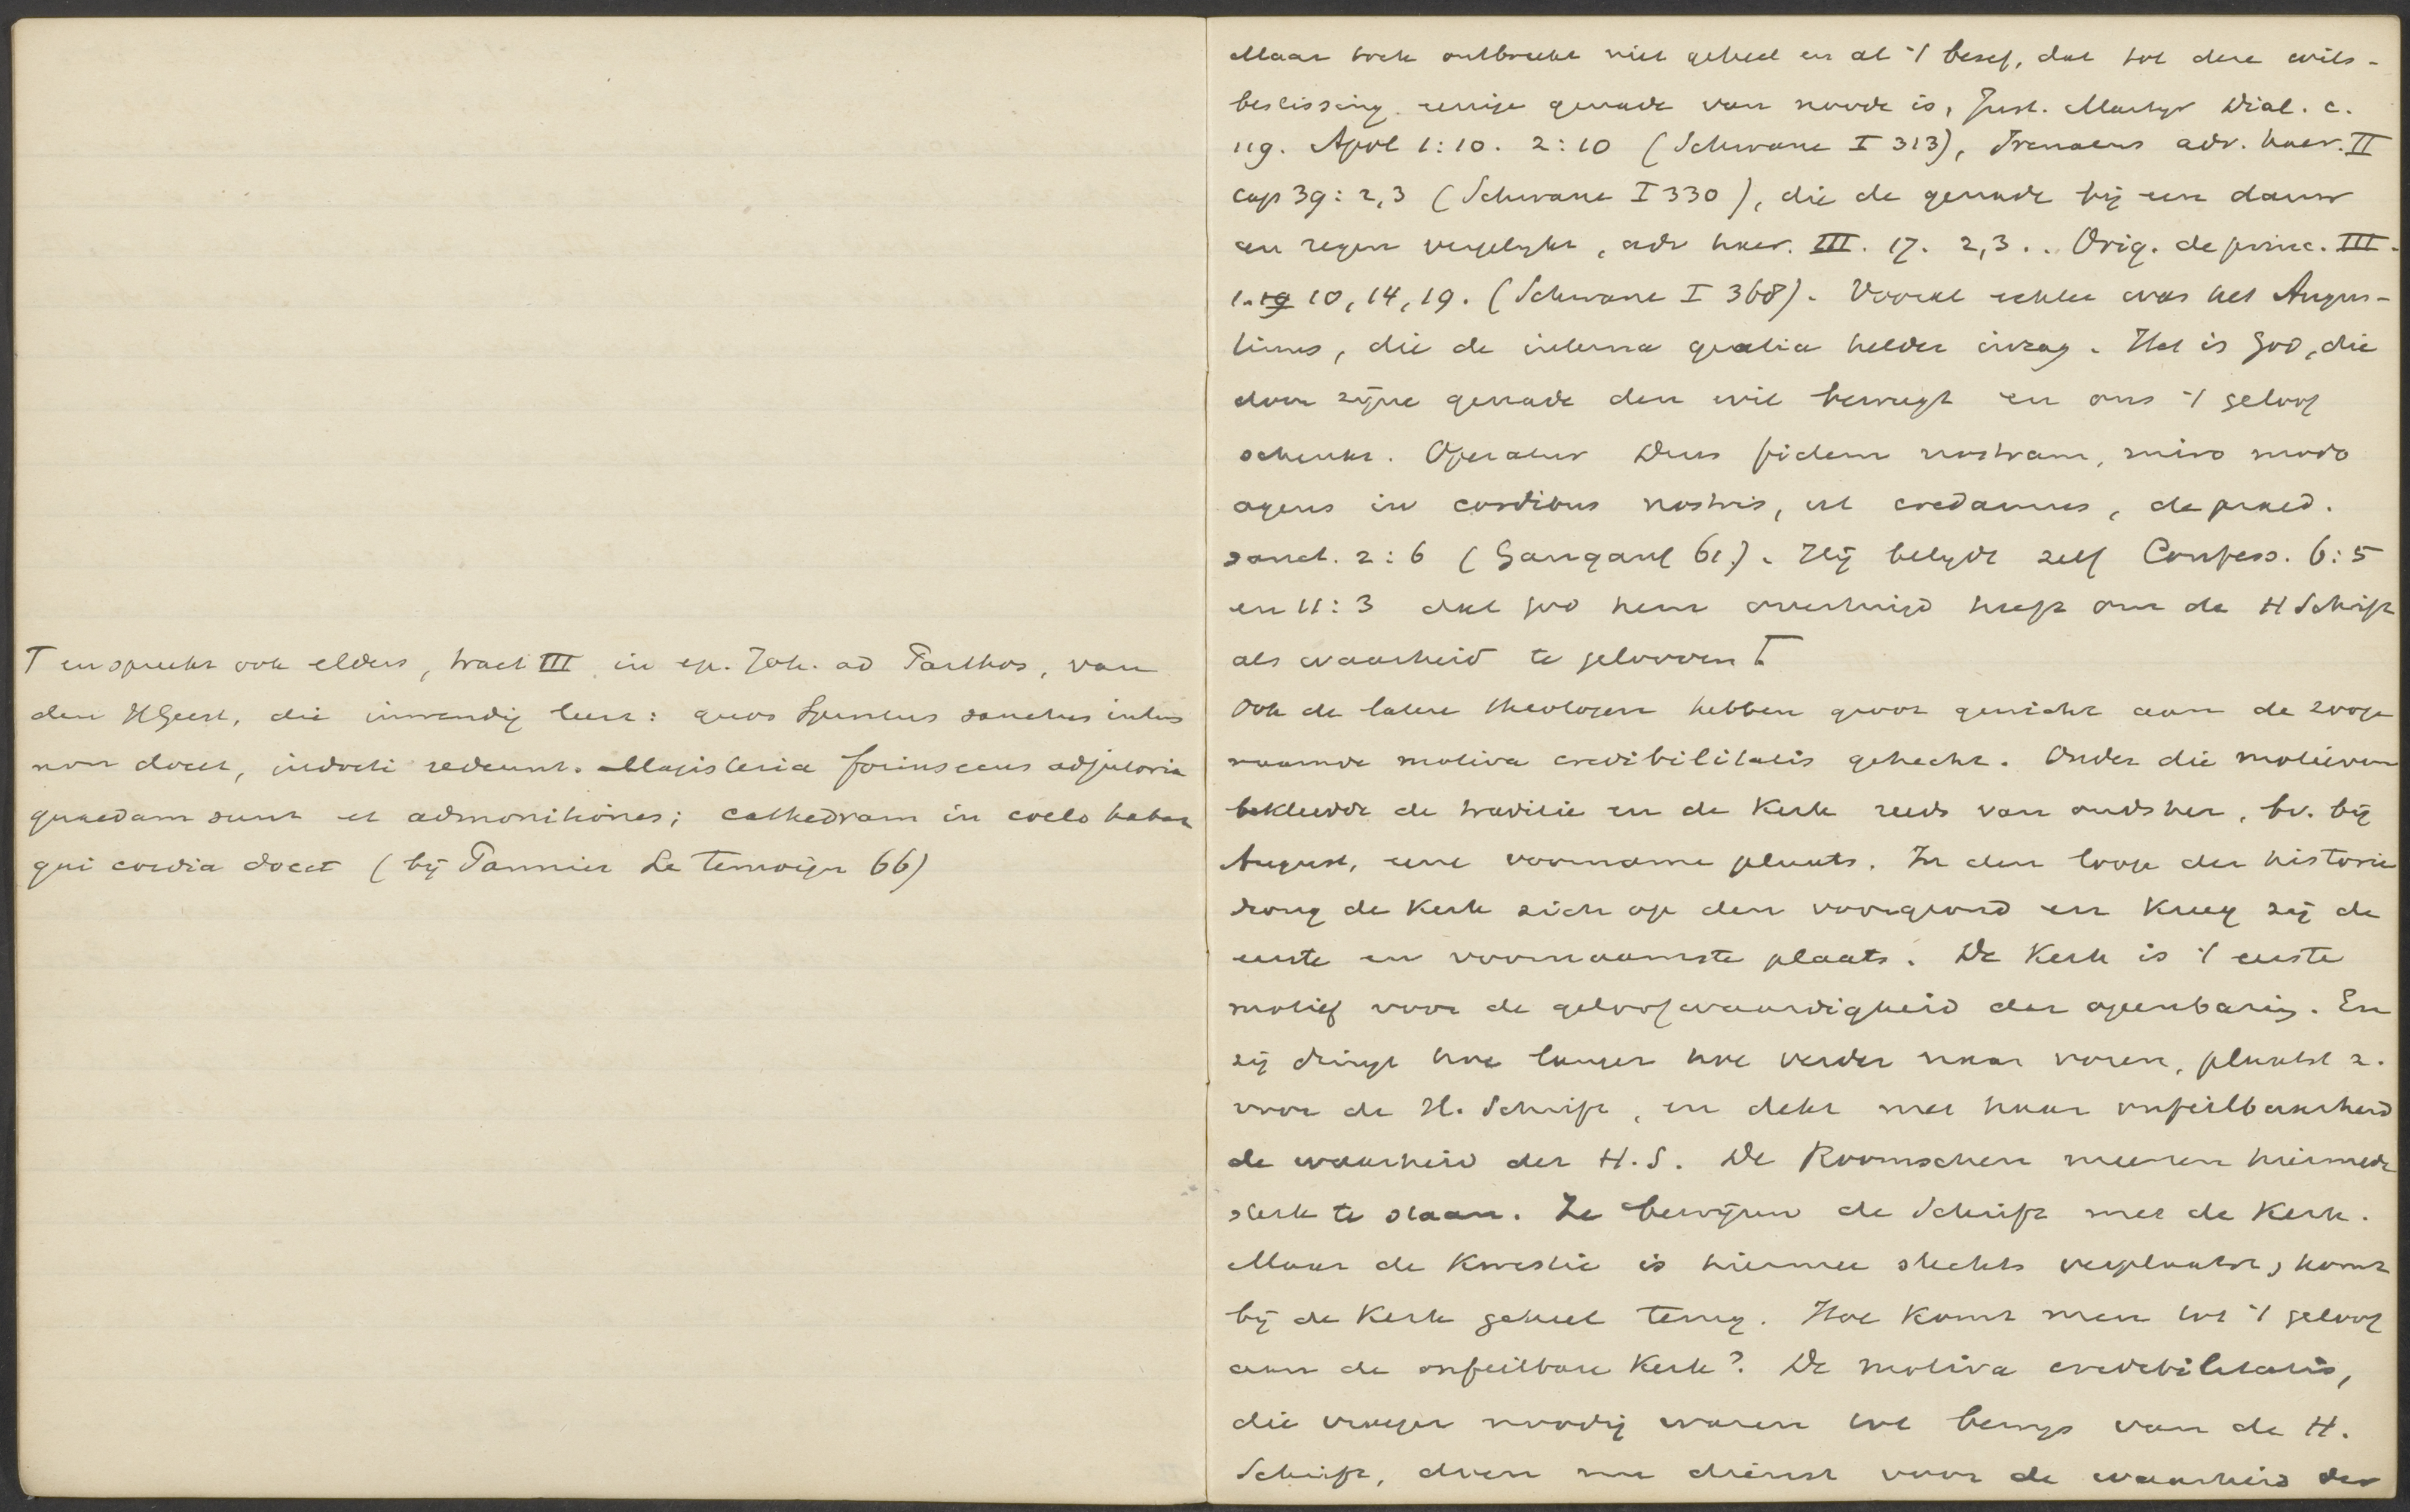 Γ en spreekt ook elders, tract III in ep. Joh. ad Parthos, van
den HGeest, die inwendig leert: quos Spiritus sanctus intus
non docet, indocti redeunt. Magisteria forinsecus adjutoria
quaedam sunt et admonitiones; cathedram in coelo habet
qui cordia docet (bij Pannier Le temoign 66)
Maar toch ontbreekt niet geheel en al 't besef, dat tot deze wils-
beslissing eenige genade van noode is, Just. Martyr Dial. c.
119. Apol 1:10. 2:10 (Schwane I 313), Irenaeus adv. haer. II
cap 39: 2,3 (Schwane I 330), die de genade bij een dauw
en regen vergelykt, adv haer. III. 17. 2,3.. Orig. de princ. III.
1. 19 10, 14, 19. (Schwane I 368). Vooral echter was het Augus-
tinus, die de interna gratia helder inzag. Het is God, die
door zijne genade den wil beweegt en ons 't geloof
schenkt. Operatur Deus fidem nostram, miro modo
agens in cordibus nostris, ut credamus, de praed.
sanct. 2:6 (Gangauf 61.). Hij belydt zelf Confess. 6:5
en 11:3 dat God hem overtuigd heeft om de H Schrift
als waarheid te gelooven Γ
Ook de latere theologen hebben groot gewicht aan de zooge
naamde motiva credibilitatis gehecht. Onder die motieven
bekleedde de traditie en de Kerk reeds van oudsher, bv. bij
August, eene voorname plaats. In den loop der historie
drong de Kerk zich op den voorgrond en kreeg zij de
eerste en voornaamste plaats. De Kerk is 't eerste
motief voor de geloofwaardigheid der openbaring. En
zij dringt hoe langer hoe verder naar voren, plaatst z.
voor de H. Schrift, en dekt met haar onfeilbaarheid
de waarheid der H.S. De Roomschen meenen hiermede
sterk te staan. Ze bewijzen de Schrift met de Kerk.
Maar de kwestie is hiermee slechts verplaatst, komt
bij de Kerk geheel terug. Hoe komt men tot 't geloof
aan de onfeilbare Kerk? De motiva credibilitatis,
die vroeger noodig waren tot bewys van de H.
Schrift, doen nu dienst voor de waarheid der